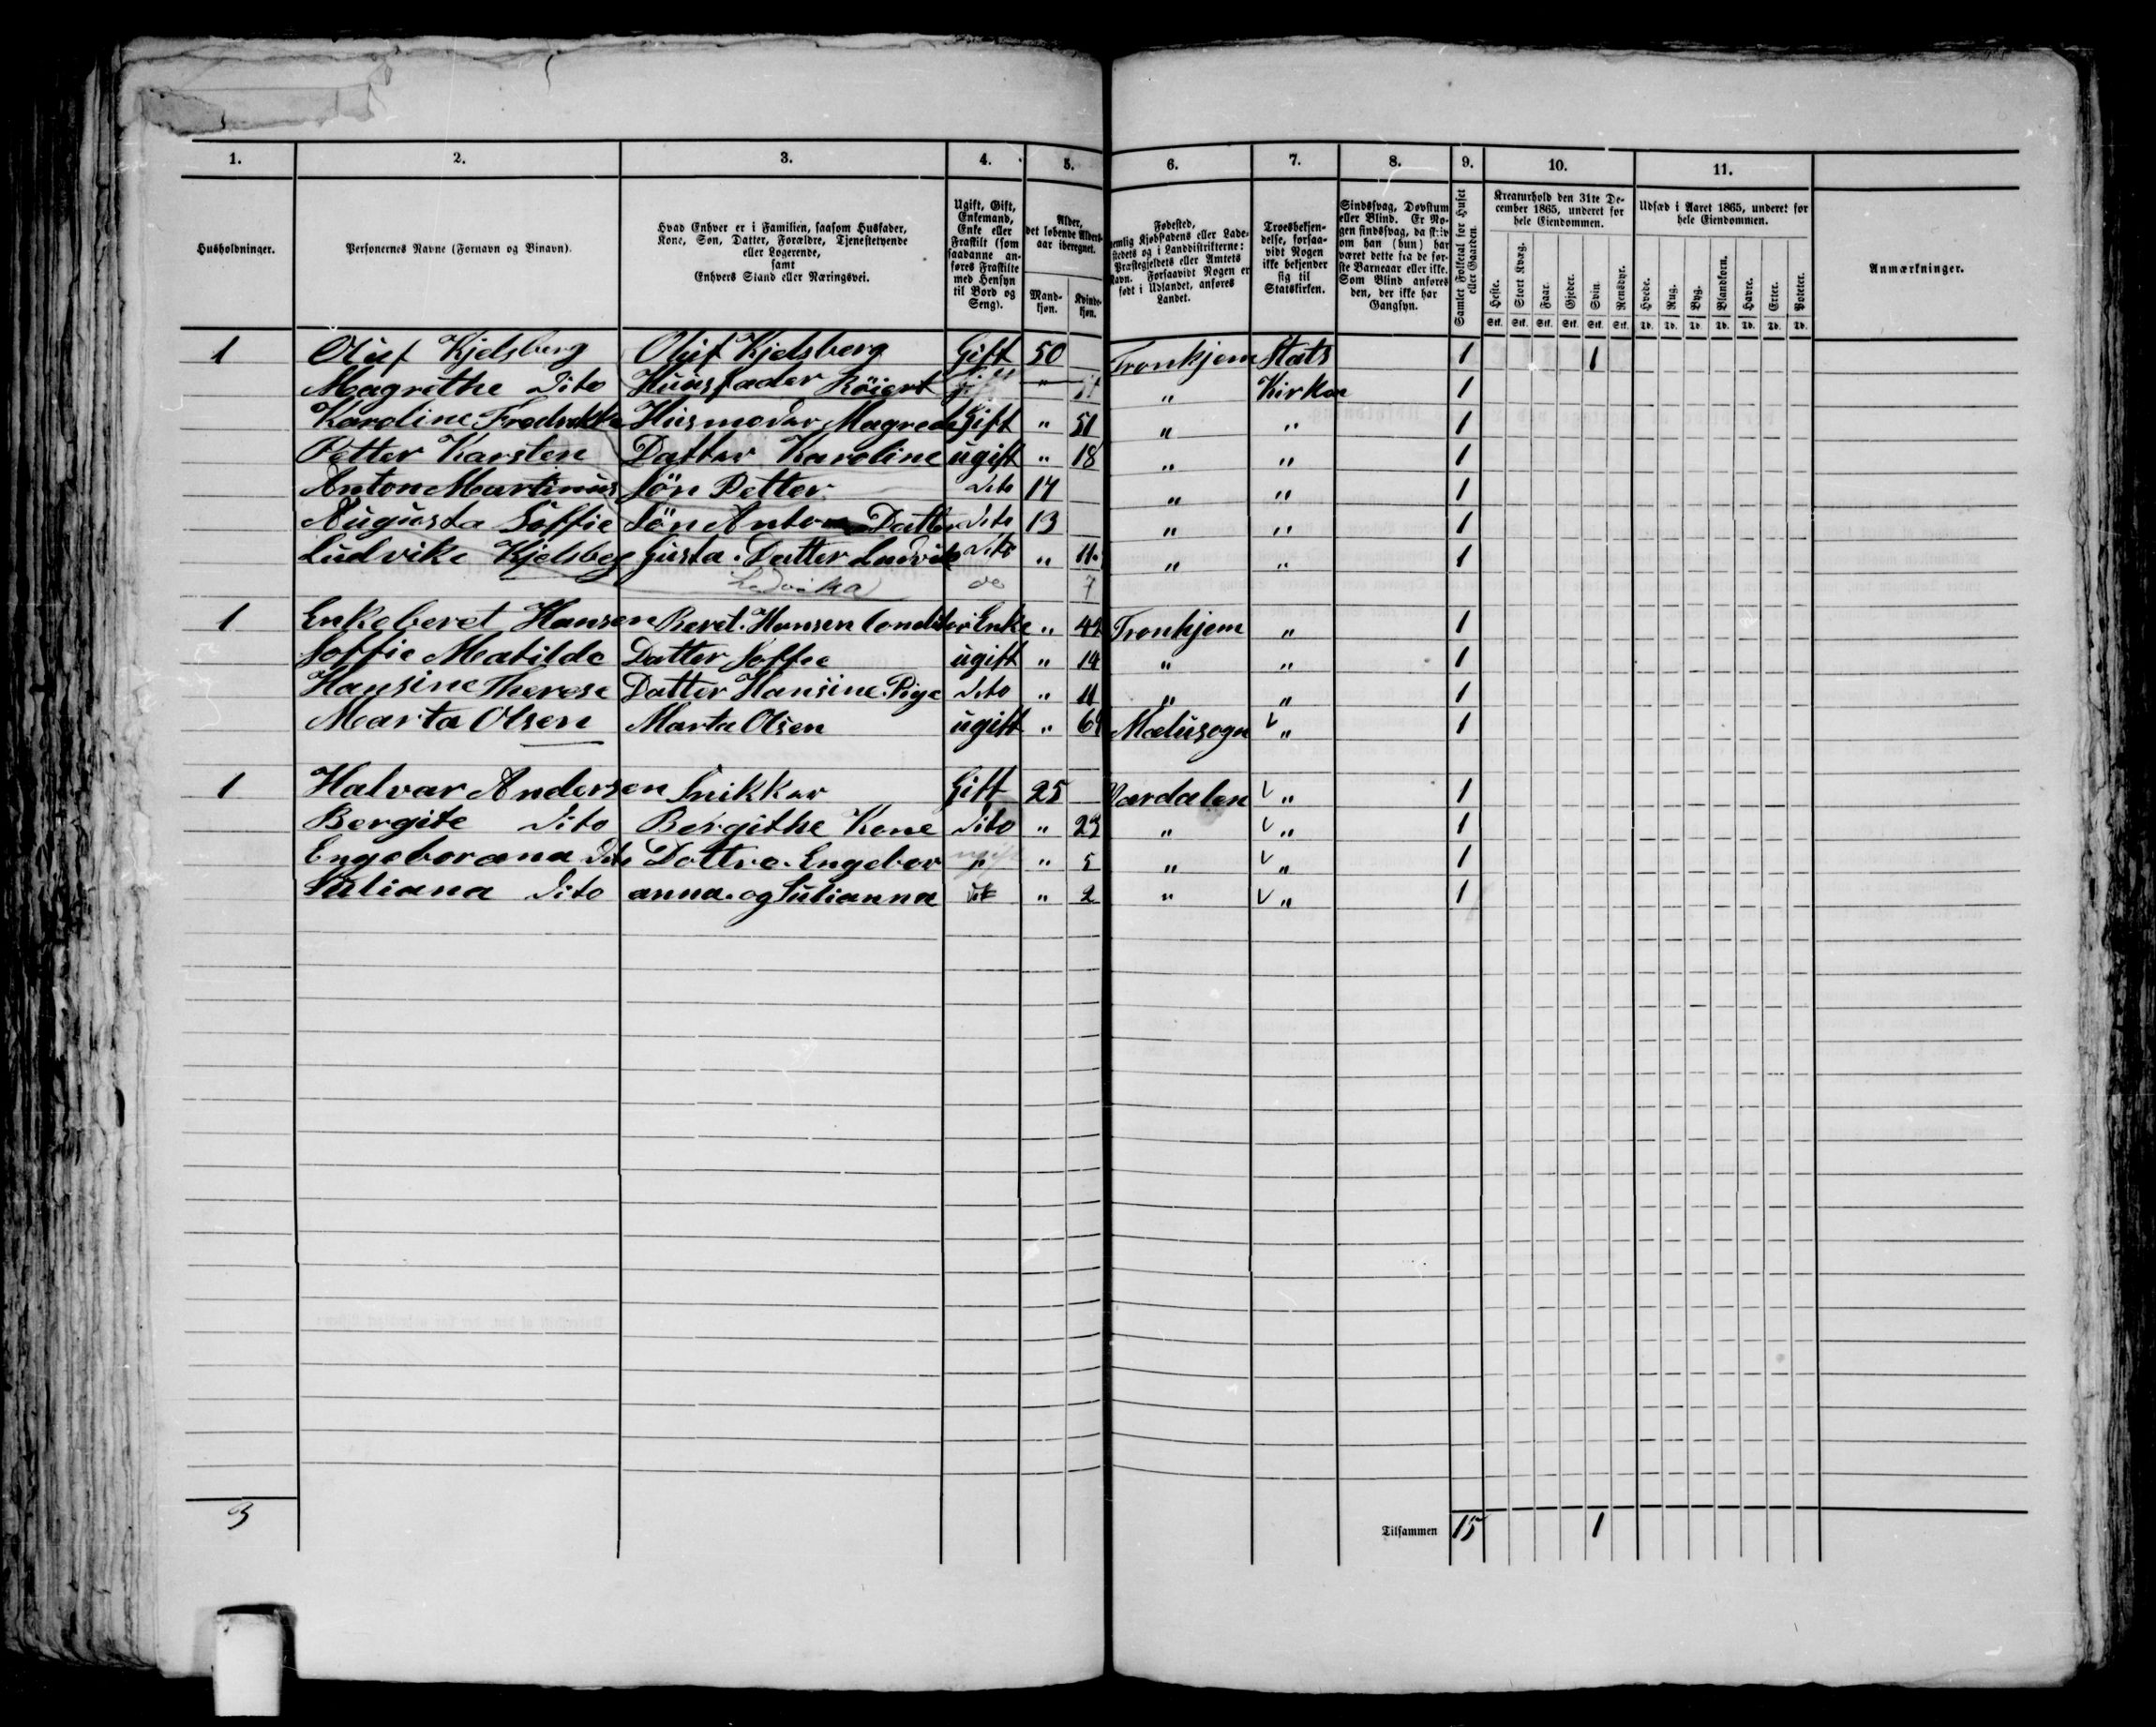 1. 2. 3. 4. 5. 6. 7. 8. 9. 10. 11.
Husholdninger.
Personernes Navne (Fornavn og Binavn).
Hvad Enhver er i Familien, saasom Husfader,
Kone, Søn, Datter, Forældre, Tjenestetyende
eller Logerende,
samt
Enhvers Stand eller Næringsvei.
Ugift, Gift,
Enkemand,
Enke eller
Fraskilt (som
saadanne an-
føres Fraskilte
med Hensyn
til Bord og
Seng).
Alder,
det løbende Alders-
aar iberegnet.
Mand-
kjøn.
Kvinde-
kjøn.
Fødested,
nemlig Kjøbstadens eller Lade-
stedets og i Landdistrikterne:
Præstegjeldets eller Amtets
Navn. Forsaavidt Nogen er
født i Udlandet, anføres
Landet.
Troesbekjen-
delse, forsaa-
vidt Nogen
ikke bekjender
sig til
Statskirken.
Sindssvag, Døvstum
eller Blind. Er No-
gen sindssvag, da skriv
om han (hun) har
været dette fra de før-
ste Barneaar eller ikke.
Som Blind anføres
den, der ikke har
Gangsyn.
Samlet Folketal for Huset
eller Gaarden.
Kreaturhold den 31te De-
cember 1865, underet for
hele Eiendommen.
Heste. Stort Kvæg. Faar. Gjeder. Svin. Rensdyr.
Stk. Stk. Stk. Stk. Stk. Stk.
Udsæd i Aaret 1865, underet for
hele Eiendommen.
Hvede. Rug. Byg. Blandkorn. Havre. Erter. Poteter.
Td. Td. Td. Td. Td. Td. Td.
Anmærkninger.
1 Oluf Kjelsberg Oluf Kjelsberg Gift 50 Tronhjem Stats 1 1
Magrethe Dito Huusfader Röiert " " Kirken 1
Karoline Fredrikke Husmoder Magrede Gift " 51 " " 1
Petter Karsten Datter Karoline ugift " 18 " " 1
Anton Martinus Sön Petter Dito 17 " " 1
Augusta Soffie Sön Anton Datter Dito 13 " " 1
Ludvike Kjelsbeg Gusta. Datter Ludvik Dito " 11 " " 1
Ludvika do 7
1 Enkeberet Hansen Beret. Hansen Conditor Enke " 42 Tronhjem " 1
Soffie Matilde Datter Soffie ugift " 14 " " 1
Hansine Therese Datter Hansine. Pige Dito " 11 " " 1
Marta Olsen Marta Olsen ugift " 69 Mælusogn v " 1
1 Halvar Andersen Snikker Gift 25 Værdalen v " 1
Bergite Dito Bergithe Kone Dito " 23 " v " 1
Engeborana Dito Dottre. Engebor " " 5 " v " 1
Juliana Dito anna. og Julianna " 2 " v " 1
3 Tilsammen 15 1